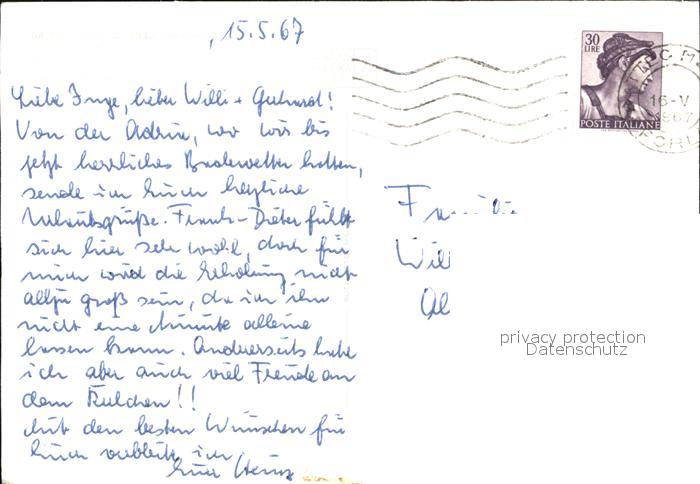 15.5.67
Liebe Inge, lieber Willi + Gerhard!
Von der Adria, wo wir bis
jetzt herrliches Badewetter hatten,
sende ich Euch herzliche
Urlaubsgrüße. Frank-Dieter fühlt
sich hier sehr wohl, doch für
mich wird die Erholung nicht
allzu groß sein, da ich ihn
nicht eine Minute alleine
lassen kann. Andererseits habe
ich aber auch viel Freude an
dem Kulchen!!
Mit den besten Wünschen für
Euch verbleibe ich
Eure
30
LIRE
POSTE ITALIANE
16-V
1967
FORLI
Familie
Wil
Al
privacy protection
Datenschutz